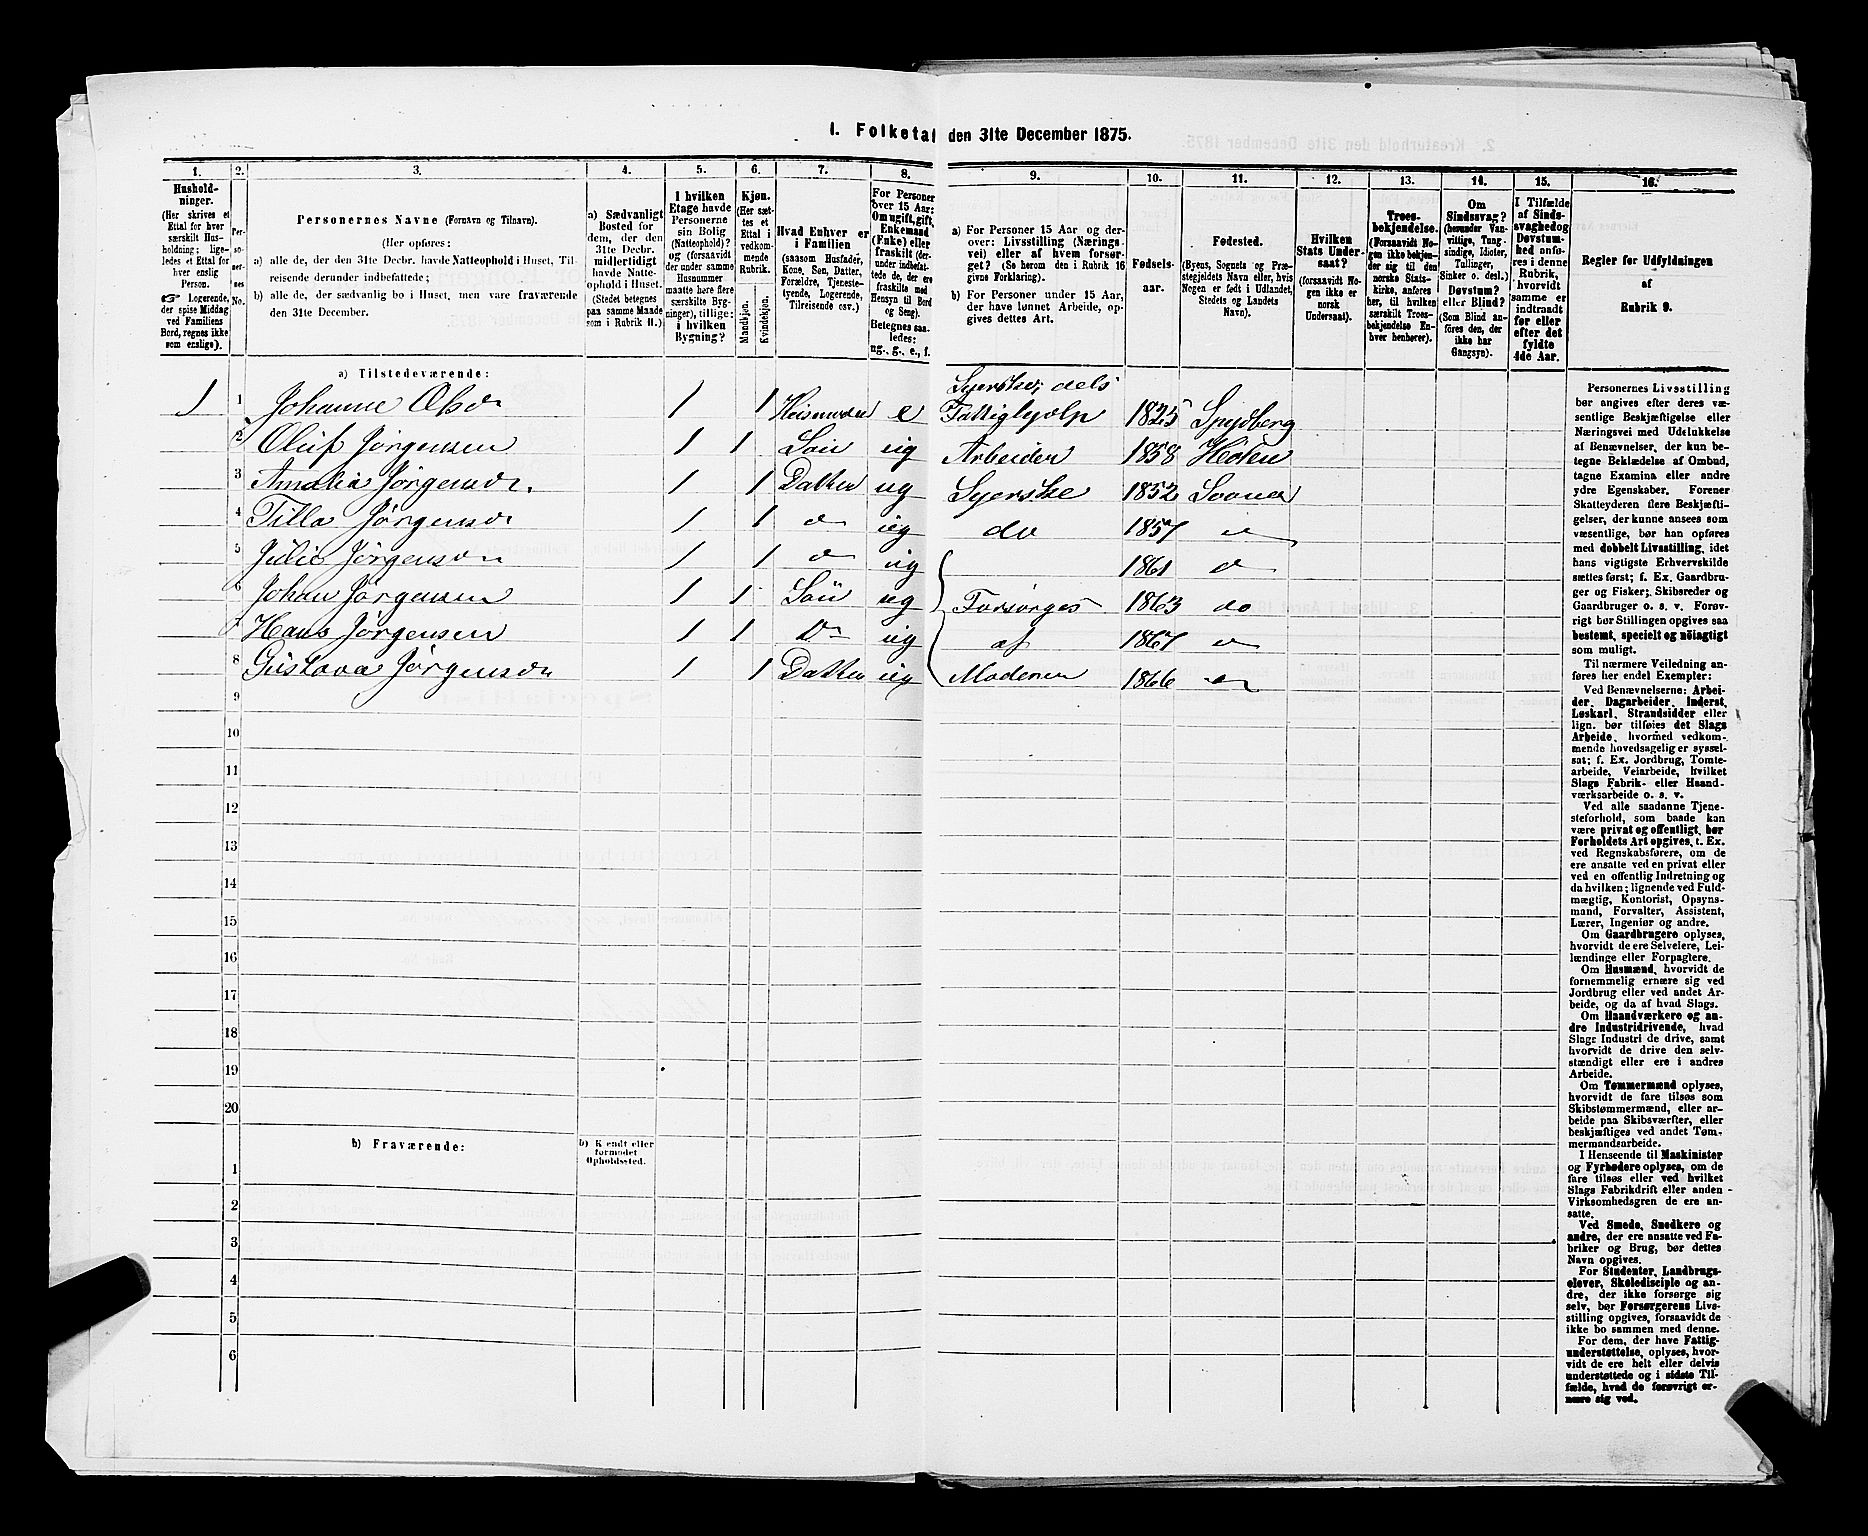 1. Folketal den 31te December 1875.
1. 2. 3. 4. 5. 6. 7. 8. 9. 10. 11. 12. 13. 14. 15. 16.
Hushold-
ninger.
(Her skrives et
Ettal for hver
særskilt Hus-
holdning; lige-
ledes et Ettal for
hver enslig
Person.
☞ Logerende,
der spise Middag
ved Familiens
Bord, regnes ikke
som enslige).
Per-
so-
ner-
nes
No.
Personernes Navne (Fornavn og Tilnavn).
(Her opføres:
a) alle de, der den 31te Decbr. havde Natteophold i Huset, Til-
reisende derunder indbefattede;
b) alle de, der sædvanlig bo i Huset, men vare fraværende
den 31te December.
a) Sædvanligt
Bosted for
dem, der den
31te Decbr.
midlertidigt
havde Natte-
ophold i Huset.
(Stedet betegnes
paa samme Maade
som i Rubrik 11.)
I hvilken
Etage havde
Personerne
sin Bolig
(Natteophold)?
og (forsaavidt
der under samme
Husnummer
maatte høre flere
særskilte Byg-
ninger), tillige:
i hvilken
Bygning?
Kjøn.
(Her sæt-
tes et
Ettal i
vedkom-
mende
Rubrik.
Mandkjøn.
Kvindekjøn.
Hvad Enhver er
i Familien
(saasom Husfader,
Kone, Søn, Datter,
Forældre, Tjeneste-
tyende, Logerende,
Tilreisende osv.)
For Personer
over 15 Aar:
Om ugift, gift,
Enkemand
(Enke) eller
fraskilt (der-
under indbefat-
tede de, der ere
fraskilte med
Hensyn til Bord
og Seng).
Betegnes saa-
ledes:
ug., g., e., f.
a) For Personer 15 Aar og der-
over: Livsstilling (Nærings-
vei) eller af hvem forsør-
get? (Se herom den i Rubrik 16
givne Forklaring).
b) For Personer under 15 Aar,
der have lønnet Arbeide, op-
gives dettes Art.
Fødsels-
aar.
Fødested.
(Byens, Sognets og Præ-
stegjeldets Navn eller, hvis
Nogen er født i Udlandet,
Stedets og Landets
Navn).
Hvilken
Stats Under-
saat?
(forsaavidt No-
gen ikke er
norsk
Undersaat).
Troes-
bekjendelse.
(Forsaavidt No-
gen ikke bekjen-
der sig til den
norske Stats-
kirke, anføres
her, til hvilken
særskilt Troes-
bekjendelse En-
hver henhører).
Om
Sindssvag?
(herunder Van-
vittige, Tung-
sindige, Idioter,
Tullinger,
Sinker o. desl.)
Døvstum?
eller Blind?
(Som Blind an-
føres den, der
ikke har
Gangsyn).
I Tilfælde
af Sinds-
svaghed og
Døvstum-
hed anfø-
res i denne
Rubrik,
hvorvidt
samme er
indtraadt
før eller
efter det
fyldte
4de Aar.
Regler for Udfyldningen
af
Rubrik 9.
a) Tilstedeværende:
1 1 Johanne Olsdr 1 1 Husmoder e Syerske, dels Fattighjælp 1825 Spydberg
2 Oluf Jörgensen 1 1 Sön ug Arbeider 1858 Hölen
3 Amalia Jörgensdr. 1 1 Datter ug Syerske 1852 Sooner
4 Tilla Jörgensdr 1 1 do ug do 1857 do
5 Julie Jörgensdr 1 1 do ug 1861 do
6 Johan Jörgensen 1 1 Sön ug Forsörges 1863 do
7 Hans Jörgensen 1 1 Do ug af 1867 do
8 Gustava Jörgensdr 1 1 Datter ug Moderen 1866 do
9
10
11
12
13
14
15
16
17
18
19
20
b) Fraværende:
b) Kjendt eller
formodet
Opholdssted.
1
2
3
4
5
6
Personernes Livsstilling
bør angives efter deres væ-
sentlige Beskjæftigelse eller
Næringsvei med Udelukkelse
af Benævnelser, der kun be-
tegne Beklædelse af Ombud,
tagne Examina eller andre
ydre Egenskaber. Forener
Skatteyderen flere Beskjæfti-
gelser, der kunne ansees som
væsentlige, bør han opføres
med dobbelt Livsstilling, idet
hans vigtigste Erhvervskilde
sættes først; f. Ex. Gaardbru-
ger og Fisker; Skibsreder og
Gaardbruger o. s. v. Forøv-
rigt bør Stillingen opgives saa
bestemt, specielt og nöiagtigt
som muligt.
Til nærmere Veiledning an-
føres her endel Exempler:
Ved Benævnelserne: Arbei-
der, Dagarbeider, Inderst,
Løskarl, Strandsidder eller
lign. bør tilføies det Slags
Arbeide, hvormed vedkom-
mende hovedsagelig er syssel-
sat; f. Ex. Jordbrug, Tomte-
arbeide, Veiarbeide, hvilket
Slags Fabrik- eller Haand-
værksarbeide o. s. v.
Ved alle saadanne Tjene-
steforhold, som baade kan
være privat og offentligt, bør
Forholdets Art opgives, t. Ex.
ved Regnskabsførere, om de
ere ansatte ved en privat eller
ved en offentlig Indretning og
da hvilken; lignende ved Fuld-
mægtig, Kontorist, Opsyns-
mand, Forvalter, Assistent,
Lærer, Ingeniør og andre.
Om Gaardbrugere oplyses,
hvorvidt de ere Selveiere, Lei-
lændinge eller Forpagtere.
Om Husmænd, hvorvidt de
fornemmelig ernære sig ved
Jordbrug eller ved andet Ar-
beide, og da af hvad Slags.
Om Haandværkere og an-
dre Industridrivende, hvad
Slags Industri de drive, samt
hvorvidt de drive den selv-
stændigt eller ere i andres
Arbeide.
Om Tømmermænd oplyses,
hvorvidt de fare tilsøs som
Skibstømmermænd, eller ar-
beide paa Skibsværfter, eller
beskjæftiges ved andet Tøm-
mermandsarbeide.
I Henseende til Maskinister
og Fyrbødere oplyses, om de
fare tilsøs eller ved hvilket
Slags Fabrikdrift eller anden
Virksomhedsgren de ere an-
satte.
Ved Smede, Snedkere og
andre, der ere ansatte ved Fa-
briker og Brug, bør dettes
Navn opgives.
For Studenter, Landbrugs-
elever, Skoledisciple og an-
dre, der ikke forsørge sig
selv, bør Forsørgerens Livs-
stilling opgives, forsaavidt de
ikke bo sammen med denne.
For dem, der have Fattig-
understøttelse, oplyses, hvor-
vidt de ere helt eller delvis
understøttede og i sidste Til-
fælde, hvad de forøvrigt er-
nære sig ved.